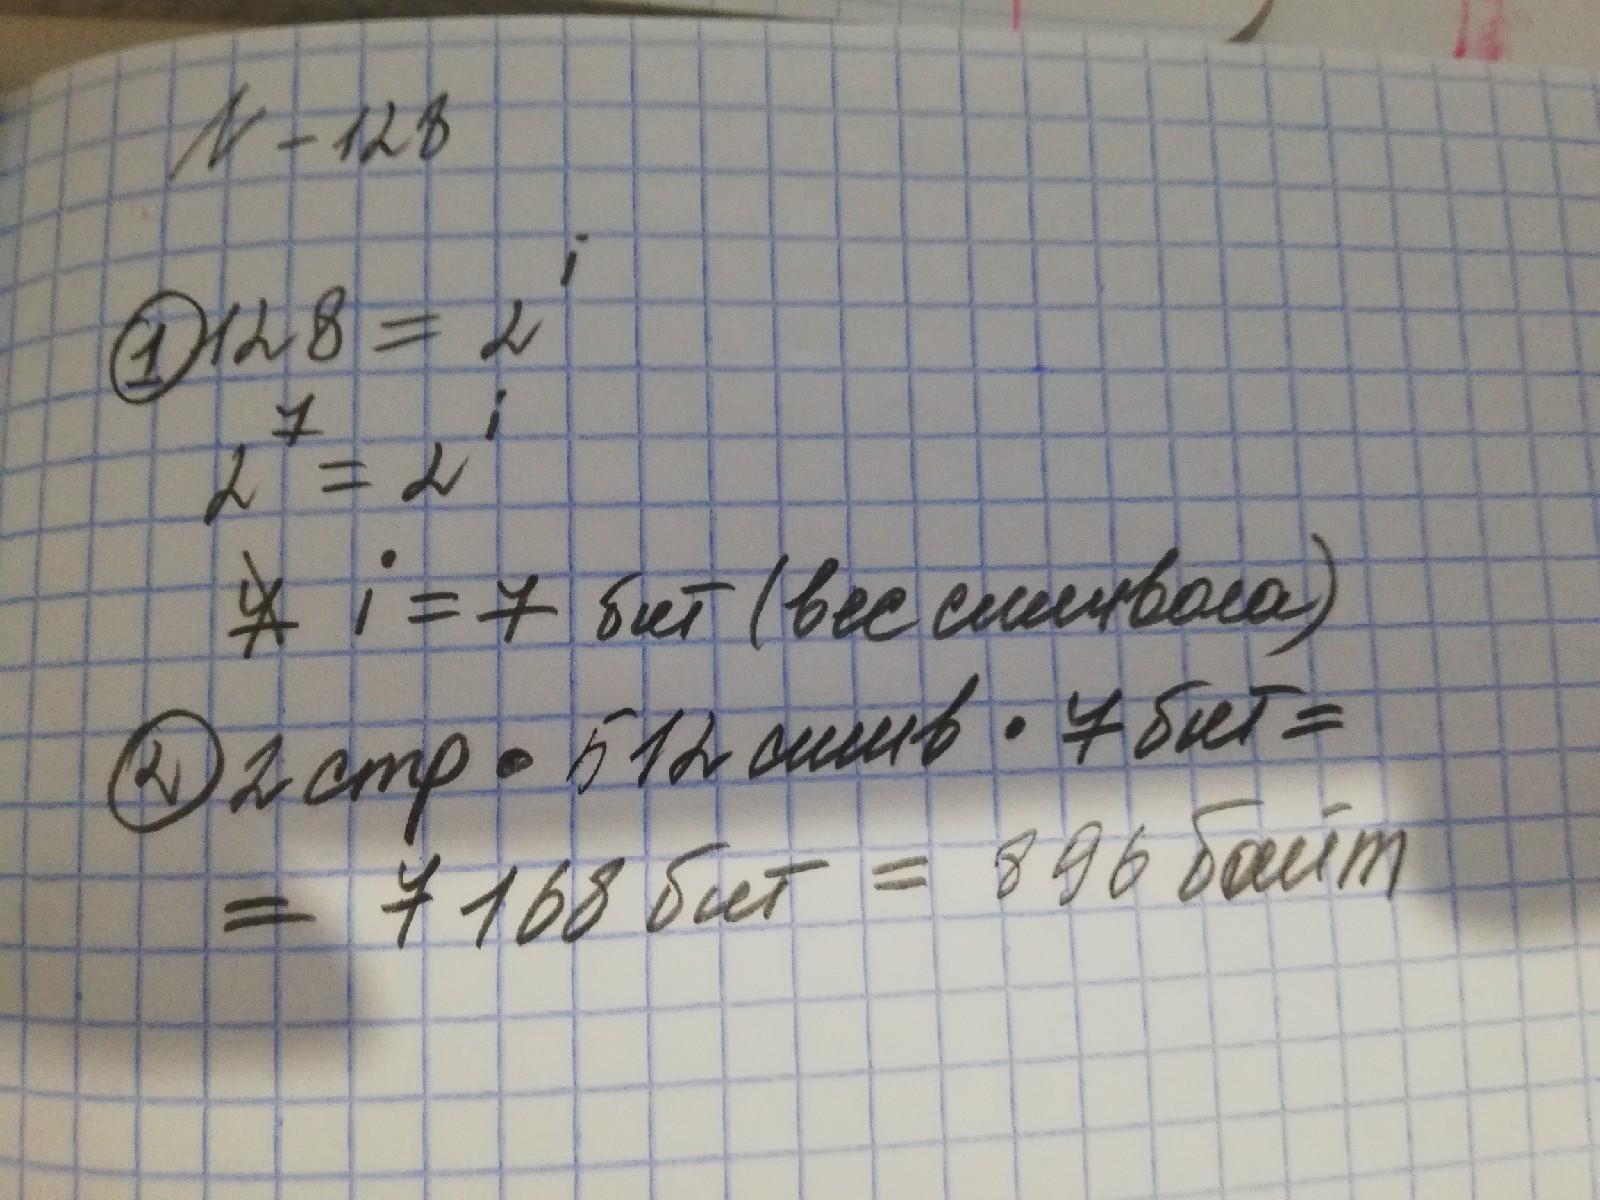 N - 128
① 128 = 2^i
2^7 = 2^i
i = 7 бит (вес символа)
② 2 стр • 512 симв • 7 бит =
= 7168 бит = 896 байт